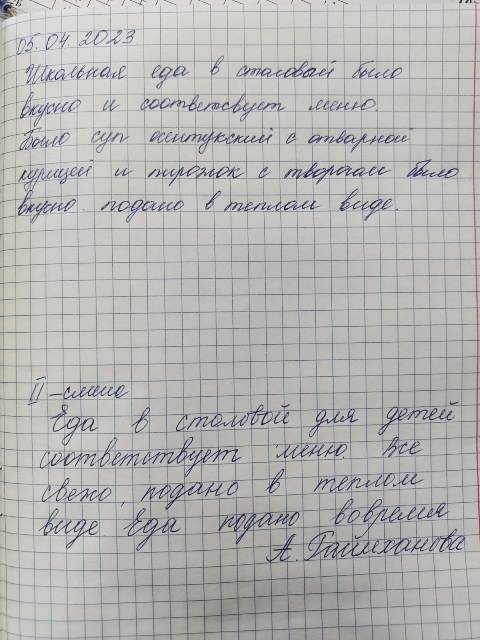 05.04.2023
Школьная еда в столовый было
вкусно и соответсвует меню.
Было суп есентукский с отварной
курицей и пирожок с творогам было
вкусно подано в теплом виде.
II - смена
Еда в столовой для детей
соответствует меню Все
свежо, подано в теплом
виде Еда подано вовремя
А.